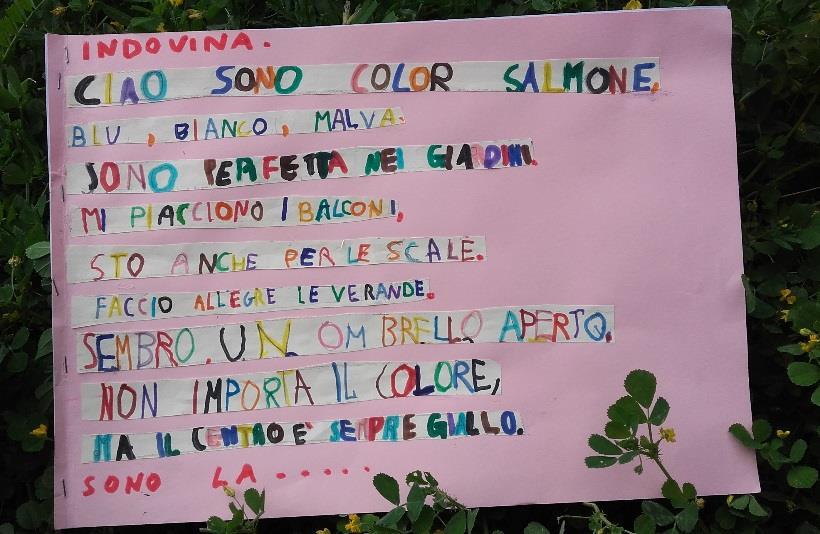 INDOVINA.
CIAO SONO COLOR SALMONE,
BLU, BIANCO, MALVA.
SONO PERFETTA NEI GIARDINI.
MI PIACCIONO I BALCONI,
STO ANCHE PER LE SCALE.
FACCIO ALLEGRE LE VERANDE.
SEMBRO. UN. OMBRELLO APERTO.
NON IMPORTA IL COLORE,
MA IL CENTRO E' SEMPRE GIALLO.
SONO LA.....